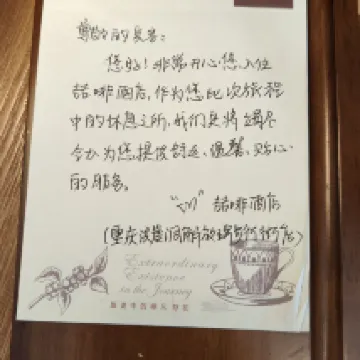 尊敬的宾客：
您好！非常开心您入住
喆啡酒店，作为您此次旅程
中的休息之所，我们更将竭尽
全力为您提供舒适、温馨、贴心
的服务。
喆啡酒店
Extraordinary
Existence
in the Journey